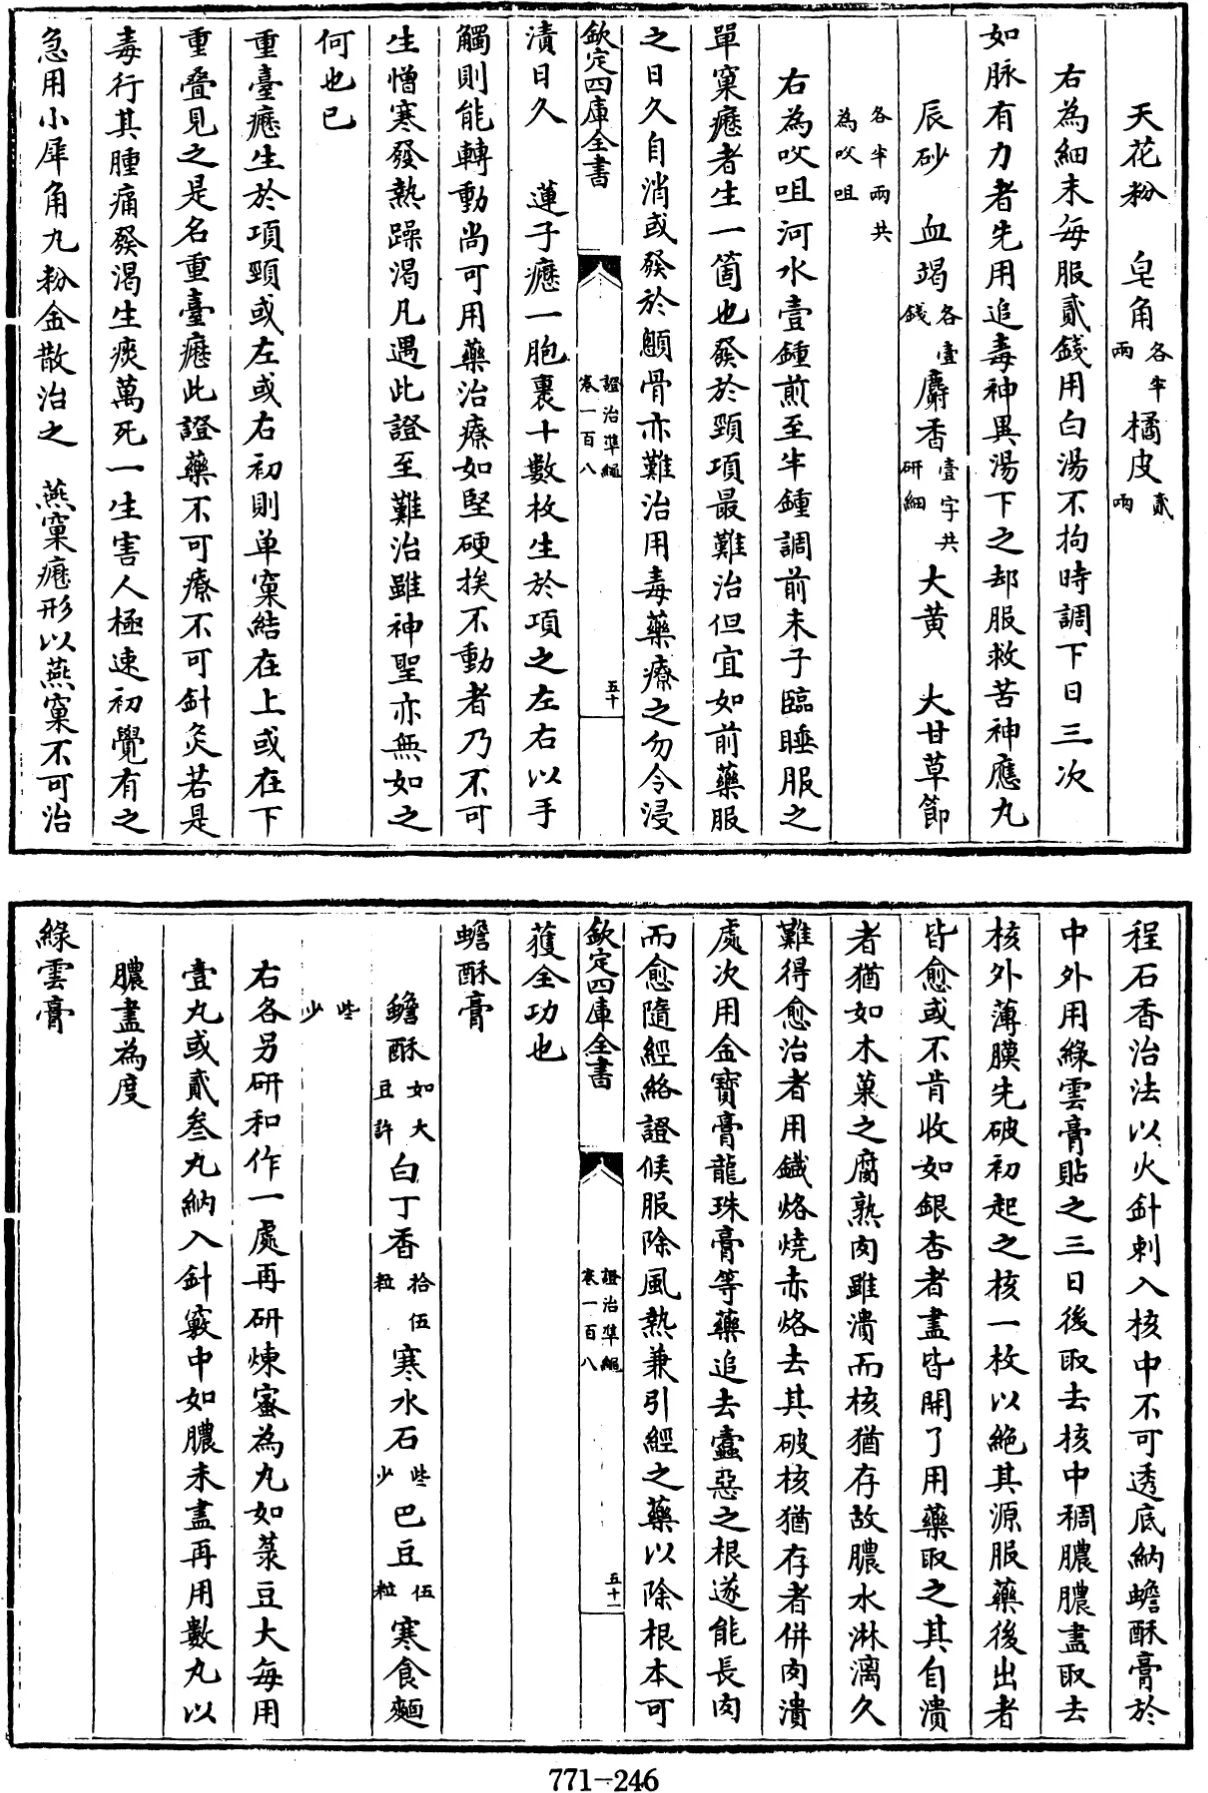 天花粉　皂角各半兩　橘皮貳兩
右為細末每服貳錢用白湯不拘時調下日三次
如脉有力者先用追毒神異湯下之却服救苦神應丸
辰砂　血竭各壹錢　麝香壹字共研細　大黄　大甘草節
各半兩共為㕮咀
右為㕮咀河水壹鍾煎至半鍾調前末子臨睡服之
單窠癧者生一箇也發於頸項最難治但宜如前藥服
之日久自消或發於顋骨亦難治用毒藥療之勿令浸
欽定四庫全書　證治準繩卷一百八　五十
漬日久　蓮子癧一胞裹十數枚生於項之左右以手
觸則能轉動尚可用藥治療如堅硬挨不動者乃不可
生憎寒發熱躁渴凡遇此證至難治雖神聖亦無如之
何也已
重臺癧生於項頸或左或右初則単窠結在上或在下
重疊見之是名重臺癧此證藥不可療不可針灸若是
毒行其腫痛發渴生痰萬死一生害人極速初覺有之
急用小犀角丸粉金散治之　燕窠癧形以燕窠不可治
程石香治法以火針刺入核中不可透底納蟾酥膏於
中外用綠雲膏貼之三日後取去核中稠膿膿盡取去
核外薄膜先破初起之核一枚以絶其源服藥後出者
皆愈或不肯收如銀杏者盡皆開了用藥取之其自潰
者猶如木菓之腐熟肉雖潰而核猶存故膿水淋漓久
難得愈治者用鐵烙燒赤烙去其破核猶存者併肉潰
處次用金寳膏龍珠膏等藥追去蠹惡之根遂能長肉
而愈隨經絡證候服除風熱兼引經之藥以除根本可
欽定四庫全書　證治準繩卷一百八　五十一
獲全功也
蟾酥膏
蟾酥如大豆許　白丁香拾伍粒　寒水石些少　巴豆伍粒　寒食麵
些少
右各另研和作一處再研煉蜜為丸如菉豆大每用
壹丸或貳叁丸納入針竅中如膿未盡再用數丸以
膿盡為度
綠雲膏
771-246